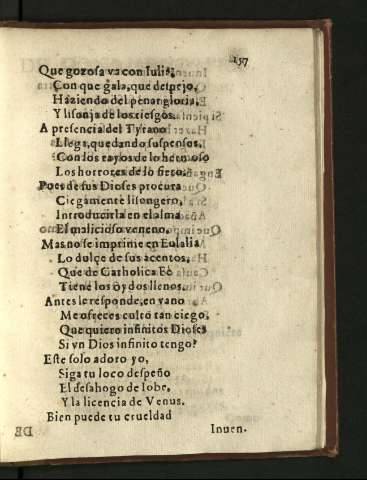 157
Que gozosa va con Iulia,
Con que gala, que despejo,
Haziendo del penar gloria,
Y lisonja de los riesgos.
A presencia del Tyrano
Llega, quedando suspensos,
Con los rayos de lo hermoso
Los horrores de lo fiero.
Pues de sus Dioses procura
Ciegamente lisongero,
Introducirla en el alma
El malicioso veneno.
Mas no se imprime en Eulalia
Lo dulçe de sus acentos,
Que de Catholica Fè
Tiene los oydos llenos.
Antes le responde, en vano
Me ofreces culto tan ciego,
Que quiero infinitos Dioses
Si vn Dios infinito tengo?
Este solo adoro yo,
Siga tu loco despeño
El desahogo de Iobe,
Y la licencia de Venus.
Bien puede tu crueldad
Inuen.